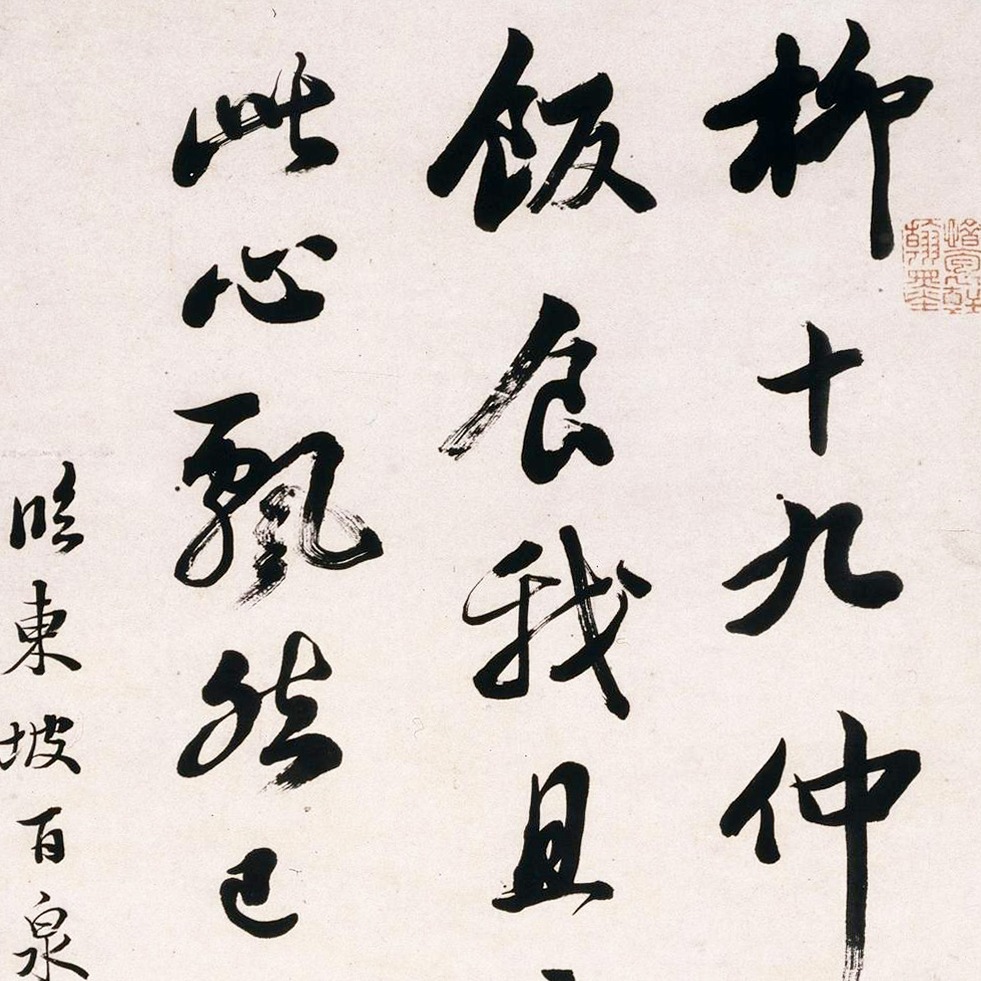 柳十九仲
飯食我且
此心飄然已
臨東坡百泉